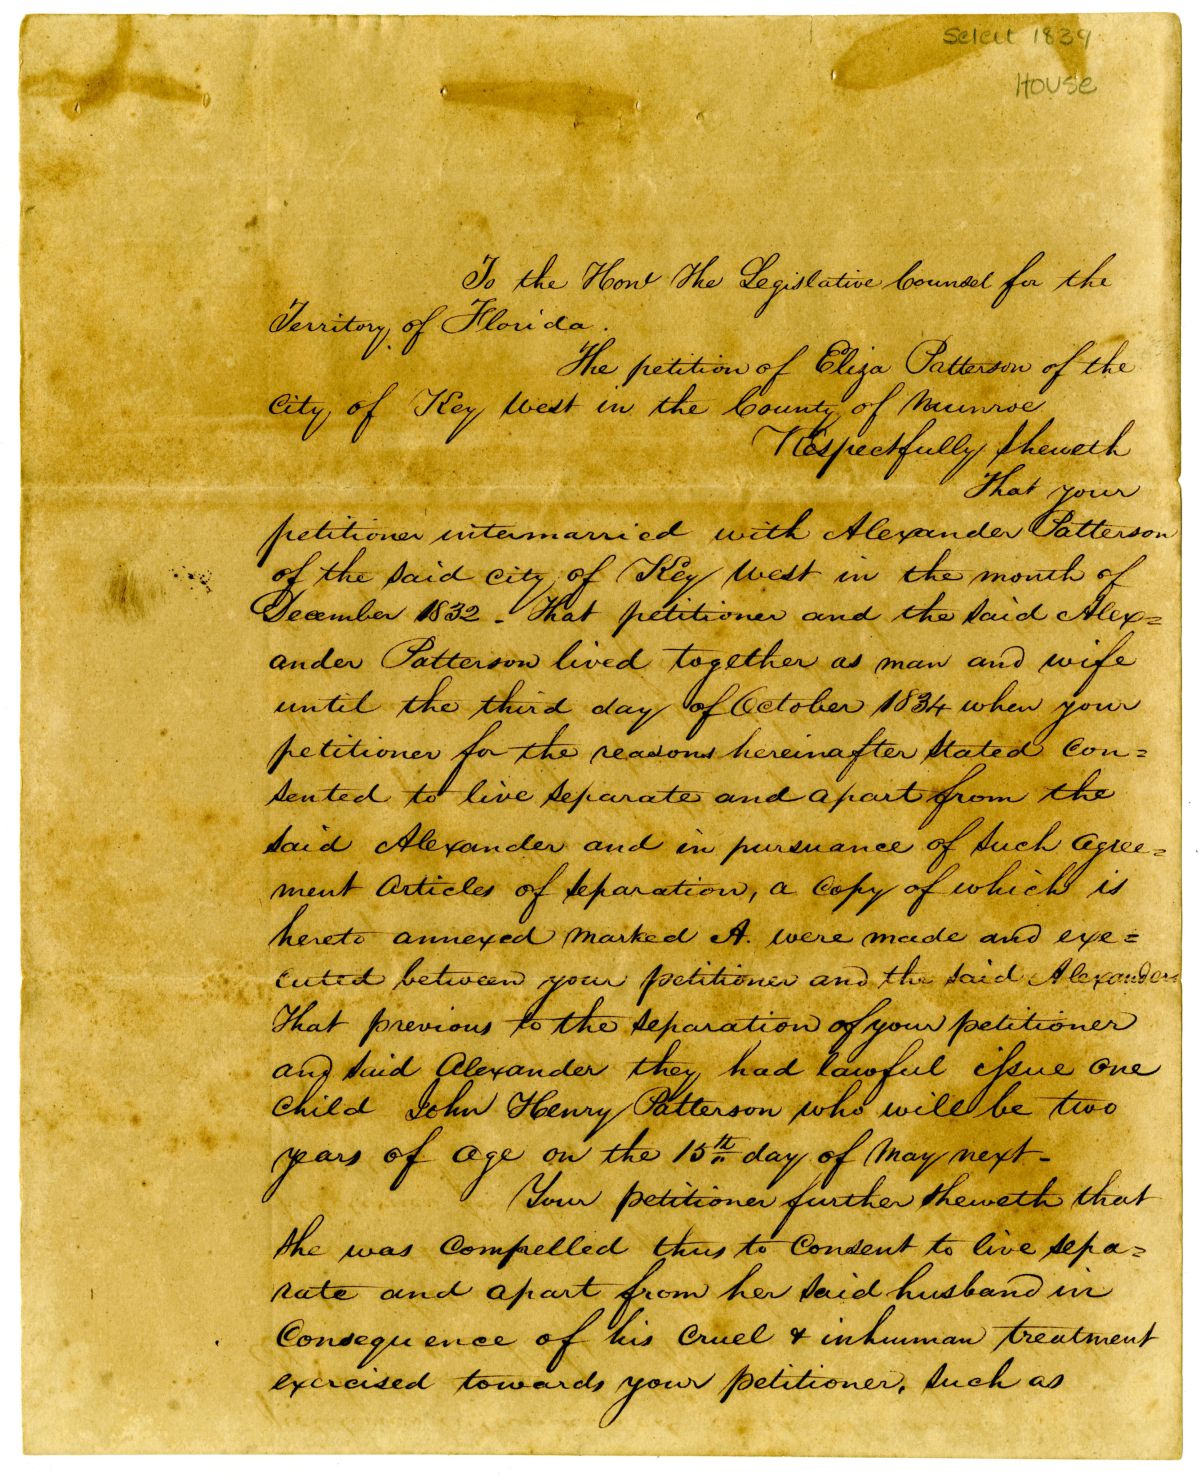 Select 1839
House
To the Honl The Legislative Counsel for the
Territory of Florida.
The petition of Eliza Patterson of the
City of Key West in the County of Munroe
Respectfully Sheweth
That your
petitioner intermarried with Alexander Patterson
of the said City of Key West in the month of
December 1832 - That petitioner and the said Alex=
ander Patterson lived together as man and wife
until the third day of October 1834 when your
petitioner for the reasons hereinafter stated Con=
sented to live separate and apart from the
said Alexander and in pursuance of such agree=
ment Articles of separation, a Copy of which is
hereto annexed marked A. were made and exe=
cuted between your petitioner and the said Alexander
That previous to the separation of your petitioner
and said Alexander they had lawful issue one
child John Henry Patterson who will be two
years of age on the 15th day of May next -
Your petitioner further sheweth that
she was Compelled thus to Consent to live sepa=
rate and apart from her said husband in
Consequence of his Cruel & inhuman treatment
exercised towards your petitioner, such as